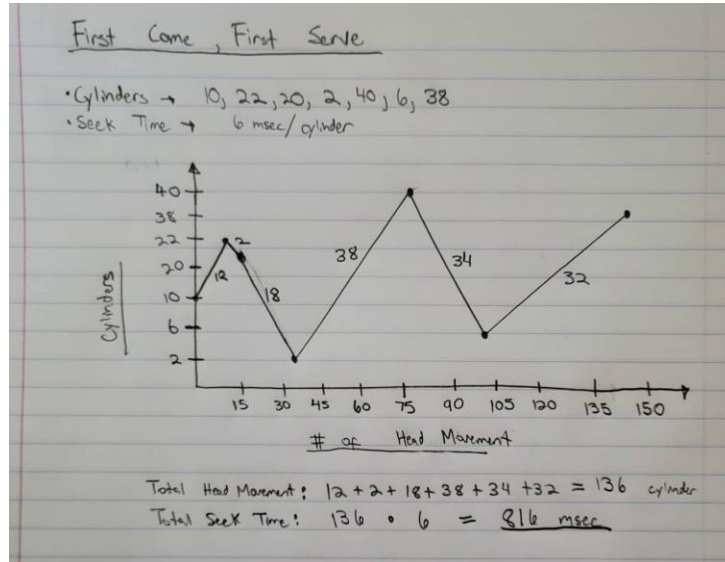 First Come, First Serve
• Cylinders → 10, 22, 20, 2, 40, 6, 38
• Seek Time → 6 msec/cylinder
40
38
22
20
10
6
2
Cylinders
12
2
18
38
34
32
15 30 45 60 75 90 105 120 135 150
# of Head Movement
Total Head Movement: 12 + 2 + 18 + 38 + 34 + 32 = 136 cylinder
Total Seek Time: 136 • 6 = 816 msec